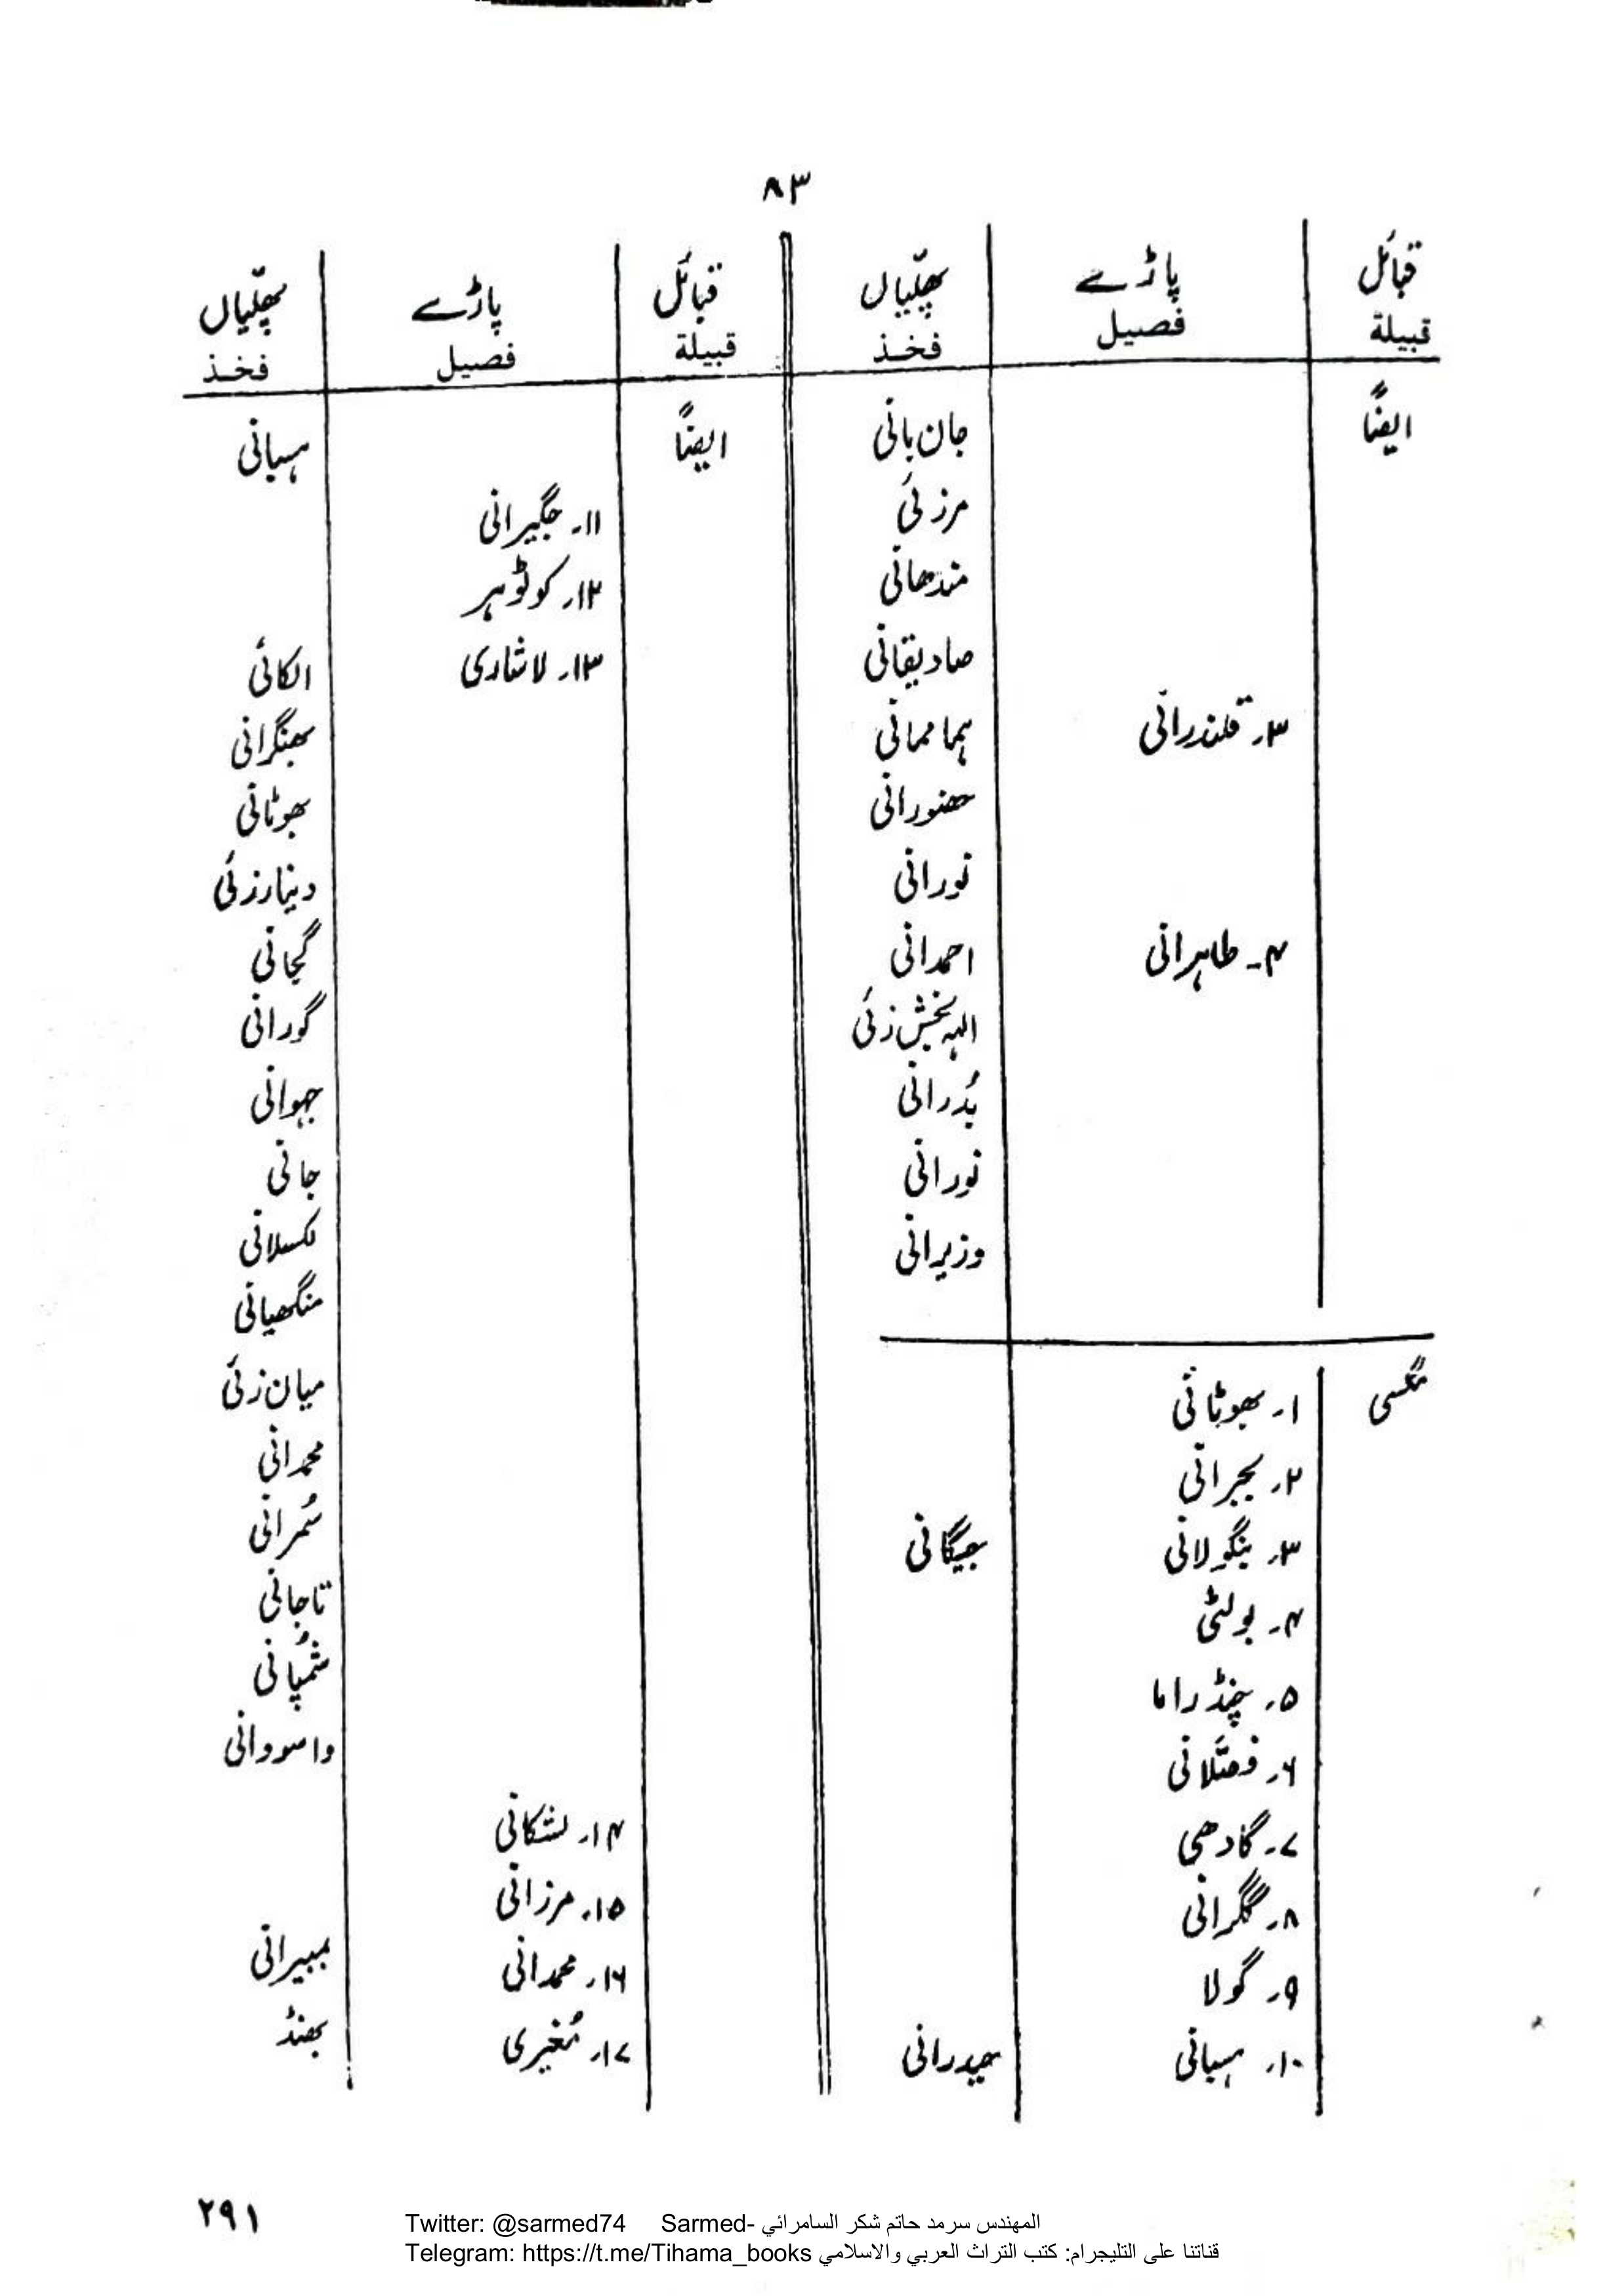 ۸۳
قبائل پاڑے پھلّیاں
قبيلة فصيل فخذ
ایضاً جان بانی
مرزئی
مندھانی
صادیقانی
۳۔ قلندرانی ہماممانی
حضورانی
نورانی
۴۔ طاہرانی احمدانی
اللہ بخش زئی
بُدرانی
نورانی
وزیرانی
مگسی ۱۔ بھوٹانی
۲۔ بجرانی
۳۔ بنگولانی جیگانی
۴۔ بولٹی
۵۔ چنڈراما
۶۔ فضلانی
۷۔ گادھی
۸۔ گگرانی
۹۔ گولا
۱۰۔ ہسبانی حیدرانی
قبائل پاڑے پھلّیاں
قبيلة فصيل فخذ
ایضاً ہسبانی
۱۱۔ جگیرانی
۱۲۔ کوٹوہر
۱۳۔ لاشاری الکانی
بھنگرانی
بھوٹانی
دینارزئی
گجانی
گورانی
جہوانی
جانی
لکسلانی
منگھیانی
میان زئی
محمدانی
سُمرانی
تاجانی
شمُپانی
واسووانی
۱۴۔ لشکانی
۱۵۔ مرزانی
۱۶۔ محمدانی بمبیرانی
۱۷۔ مُغیری بھنڈ
٢٩١
Twitter: @sarmed74 Sarmed- المهندس سرمد حاتم شكر السامرائي
Telegram: https://t.me/Tihama_books قناتنا على التليجرام: كتب التراث العربي والاسلامي